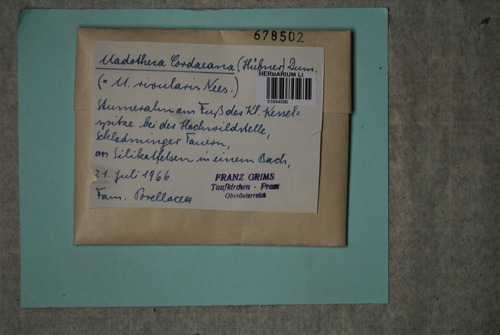 678502
Madotheca Cordaeana (Hübner) Dum.
(= M. rivularis Nees.)
HERBARIUM LI
am Fuß der Kl. Kessel=
spitze bei der Hochwildstelle,
Schladminger Tauern,
an Silikatfelsen in einem Bach,
21. Juli 1966
Fam. Porellaceae
FRANZ GRIMS
Taufkirchen - Pram
Oberösterreich